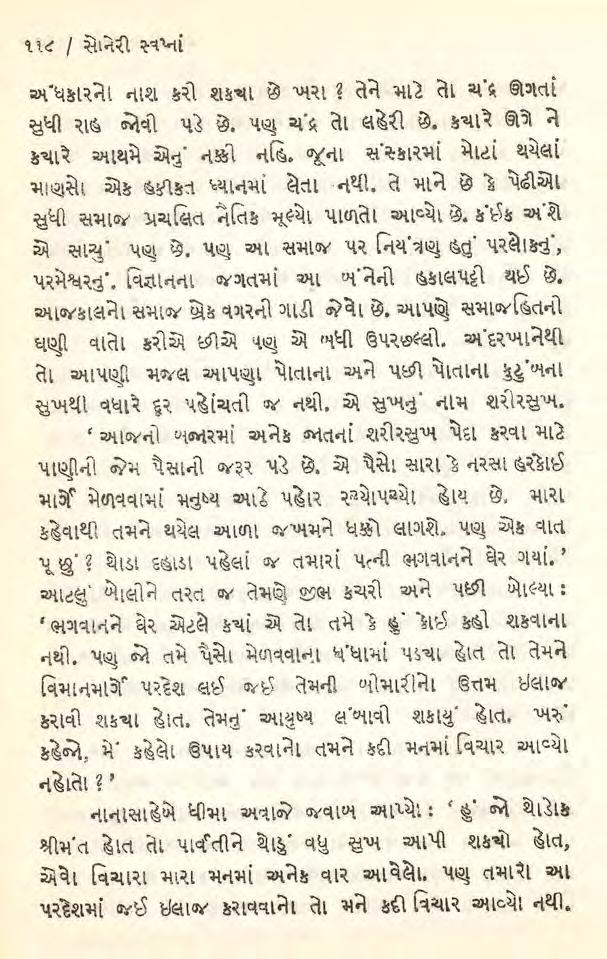 ૧૧૮ / સોનેરી સ્વપ્નાં
અંધકારનો નાશ કરી શકયા છે ખરા ? તેને માટે તો ચંદ્ર ઊગતાં
સુધી રાહ જોવી પડે છે. પણ ચંદ્ર તો લહેરી છે. કયારે ઊગે ને
કયારે આથમે એનું નક્કી નહિ. જૂના સંસ્કારમાં મોટાં થયેલાં
માણસો એક હકીકત ધ્યાનમાં લેતા નથી. તે માને છે કે પેઢીઓ
સુધી સમાજ પ્રચલિત નૈતિક મૂલ્યો પાળતો આવ્યો છે. કંઈક અંશે
એ સાચું પણ છે. પણ આ સમાજ પર નિયંત્રણ હતું પરલોકનું,
પરમેશ્વરનું. વિજ્ઞાનના જગતમાં આ બંનેની હકાલપટ્ટી થઈ છે.
આજકાલનો સમાજ બ્રેક વગરની ગાડી જેવો છે. આપણે સમાજહિતની
ઘણી વાતો કરીએ છીએ પણ એ બધી ઉપરછલ્લી. અંદરખાનેથી
તો આપણી મજલ આપણા પોતાના અને પછી પોતાના કુટુંબના
સુખથી વધારે દૂર પહોંચતી જ નથી. એ સુખનું નામ શરીરસુખ.
‘ આજની બજારમાં અનેક જાતનાં શરીરસુખ પેદા કરવા માટે
પાણીની જેમ પૈસાની જરૂર પડે છે. એ પૈસો સારા કે નરસા હરકોઈ
માર્ગે મેળવવામાં મનુષ્ય આઠે પહોર રચ્યોપચ્યો હોય છે. મારા
કહેવાથી તમને થયેલ આળા જખમને ધક્કો લાગશે. પણ એક વાત
પૂછું ? થોડા દહાડા પહેલાં જ તમારાં પત્ની ભગવાનને ઘેર ગયાં. ’
આટલું બોલીને તરત જ તેમણે જીભ કચરી અને પછી બોલ્યા :
‘ ભગવાનને ઘેર એટલે કયાં એ તો તમે કે હું કોઈ કહી શકવાના
નથી. પણ જો તમે પૈસો મેળવવાના ધંધામાં પડયા હોત તો તેમને
વિમાનમાર્ગે પરદેશ લઈ જઈ તેમની બીમારીનો ઉત્તમ ઇલાજ
કરાવી શકયા હોત. તેમનું આયુષ્ય લંબાવી શકાયું હોત. ખરું
કહેજો, મેં કહેલો ઉપાય કરવાનો તમને કદી મનમાં વિચાર આવ્યો
નહોતો ? ’
નાનાસાહેબે ધીમા અવાજે જવાબ આપ્યો : ‘ હું જો થોડોક
શ્રીમંત હોત તો પાર્વતીને થોડું વધુ સુખ આપી શકયો હોત,
એવો વિચારા મારા મનમાં અનેક વાર આવેલો. પણ તમારો આ
પરદેશમાં જઈ ઇલાજ કરાવવાનો તો મને કદી વિચાર આવ્યો નથી.